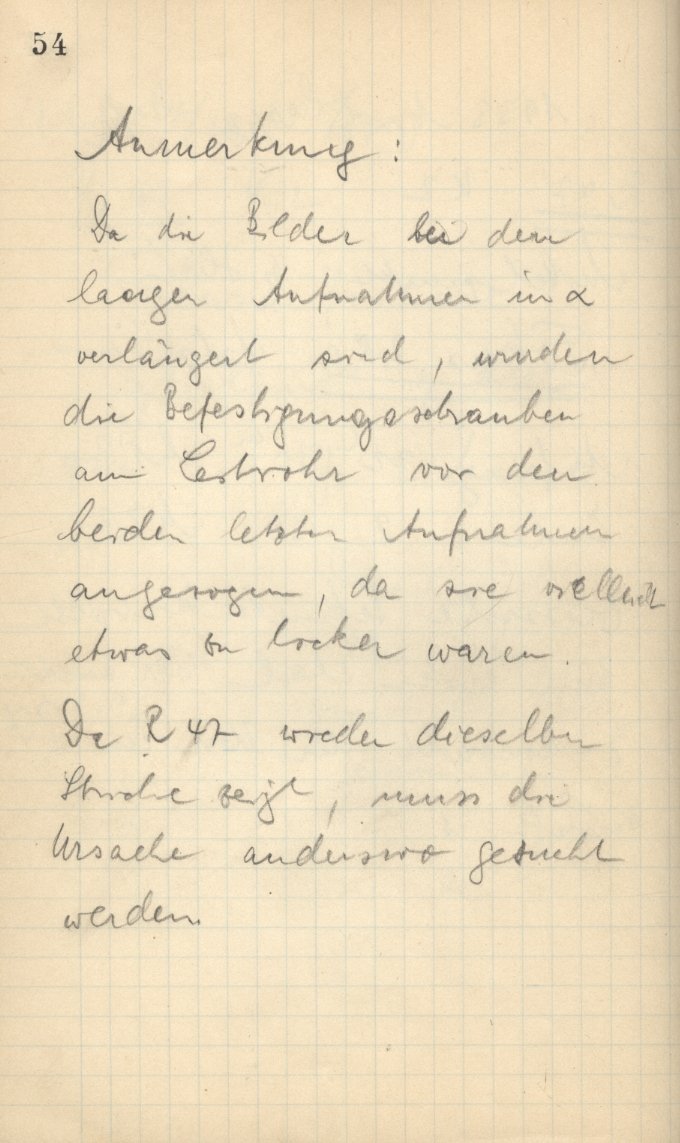 54
Anmerkung:
Da die Bilder bei den
langen Aufnahmen in α
verlängert sind, wurden
die Befestigungsschrauben
am Leitrohr vor den
beiden letzten Aufnahmen
angezogen, da sie vielleicht
etwas zu locker waren.
Da R 47 wieder dieselben
Striche zeigt, muss die
Ursache anderswo gesucht
werden.